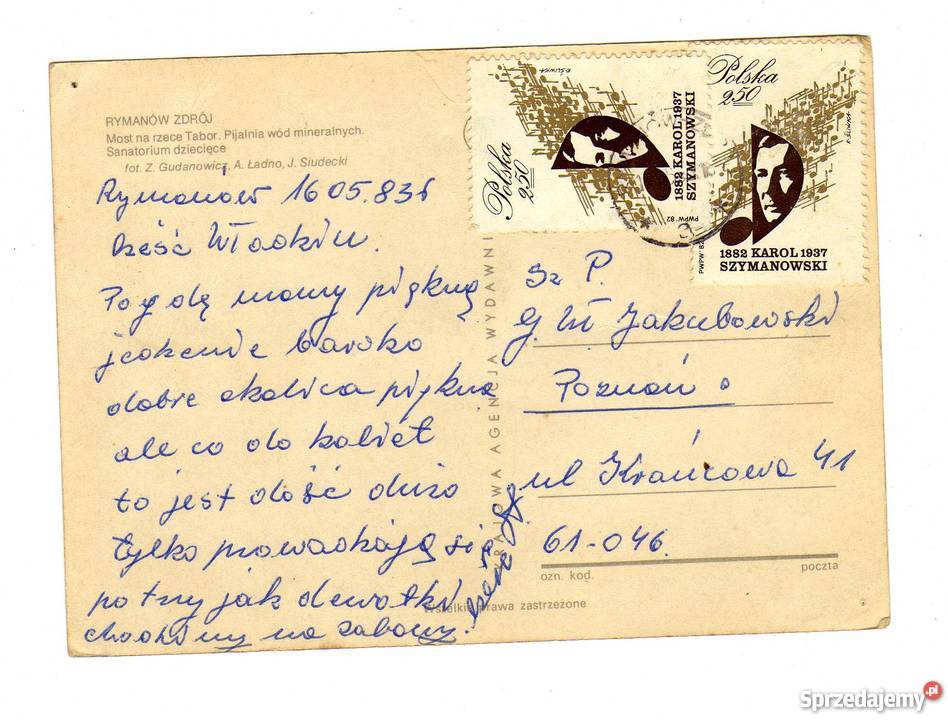 RYMANÓW ZDRÓJ
Most na rzece Tabor. Pijalnia wód mineralnych.
Sanatorium dziecięce
fot. Z. Gudanowicz, A. Ładno, J. Siudecki
Rymanów 16 05.83
Cześć
Pogodę mamy piękną
jedzenie bardzo
dobre okolica piękna
ale co do kobiet
to jest dość dużo
tylko prowadzają się
po trzy jak dewotki
chodzimy na zabawy.
KRAJOWA AGENCJA WYDAWNI
Wszelkie prawa zastrzeżone
Polska
250
R. ŚLIWKA
1882 KAROL 1937
SZYMANOWSKI
PWPW '82
Polska
250
R. ŚLIWKA
1882 KAROL 1937
SZYMANOWSKI
PWPW '82
Sz P.
Jakubowski
Poznań
ul Krańcowa 41
61-046
ozn. kod.
poczta
Sprzedajemy.pl